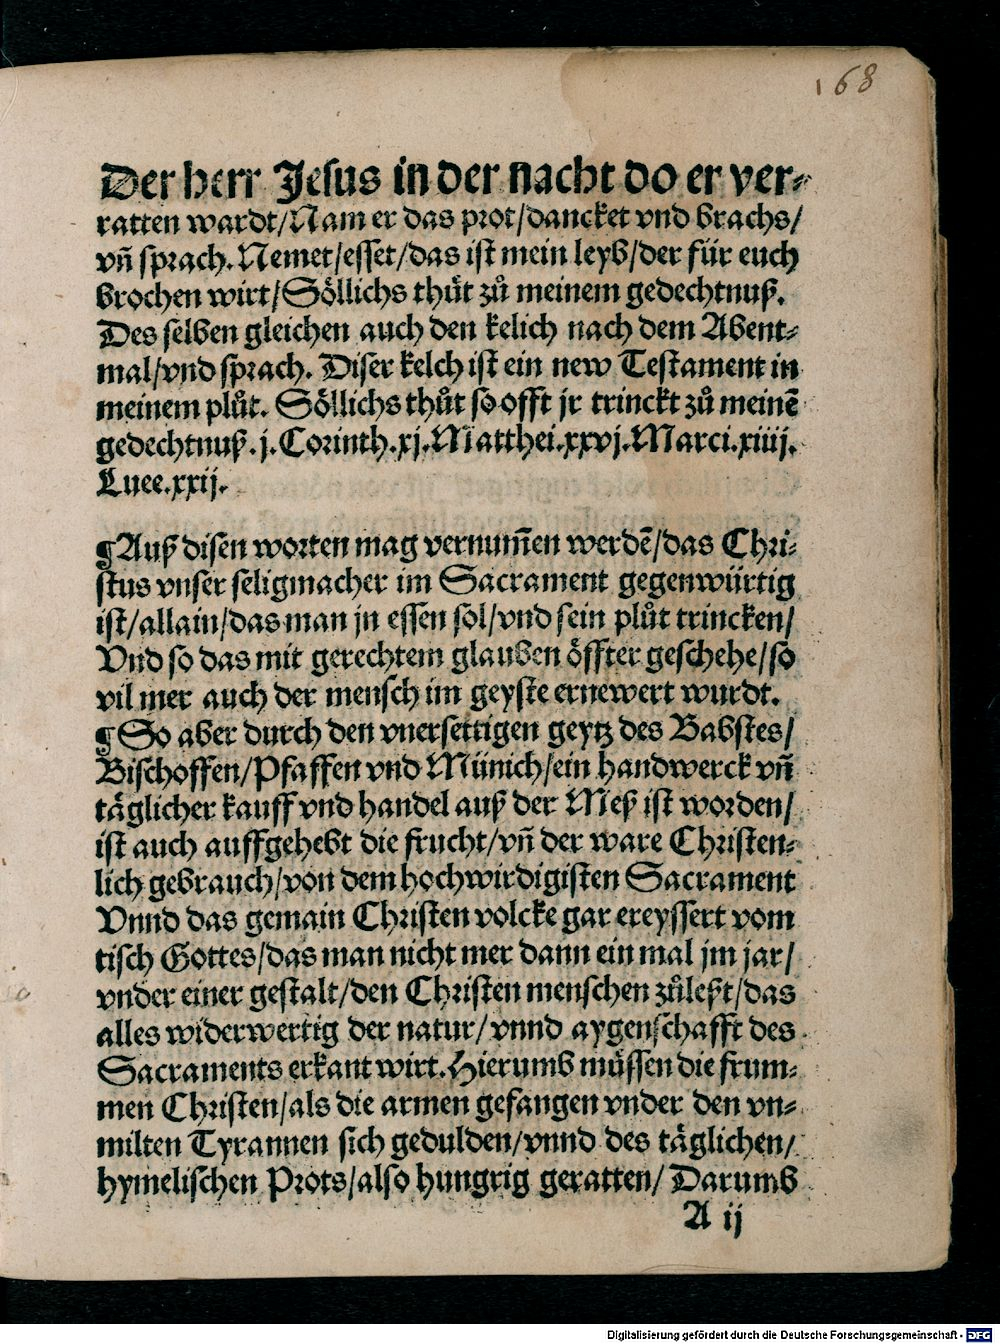 168
Der herr Jesus in der nacht do er ver⸗
ratten wardt/Nam er das prot/dancket vnd brachs/
vn̄ sprach. Nemet/esset/das ist mein leyb/der für euch
brochen wirt/Söllichs thuͤt zuͦ meinem gedechtnuß.
Des selben gleichen auch den kelich nach dem Abent⸗
mal/vnd sprach. Diser kelch ist ein new Testament in
meinem pluͦt. Söllichs thuͦt so offt jr trinckt zuͦ meinē
gedechtnuß. j. Corinth.xj. Matthei.xxvj. Marci.xiiij.
Luce.xxij.
¶Auß disen worten mag vernum̄en werdē/das Chri⸗
stus vnser seligmacher im Sacrament gegenwürtig
ist/allain/das man jn essen sol/vnd sein pluͦt trincken/
Vnd so das mit gerechtem glauben öffter geschehe/so
vil mer auch der mensch im geyste ernewert wurdt.
¶So aber durch den vnersettigen geytz des Babstes/
Bischoffen/Pfaffen vnd Münich/ein handwerck vn̄
täglicher kauff vnd handel auß der Meß ist worden/
ist auch auffgehebt die frucht/vn̄ der ware Christen⸗
lich gebrauch/von dem hochwirdigisten Sacrament
Vnnd das gemain Christen volcke gar ereyssert vom
tisch Gottes/das man nicht mer dann ein mal jm jar/
vnder einer gestalt/den Christen menschen zuͦleßt/das
alles widerwertig der natur/vnnd aygenschafft des
Sacraments erkant wirt. Hierumb müssen die frum⸗
men Christen/als die armen gefangen vnder den vn⸗
milten Tyrannen sich gedulden/vnnd des täglichen/
hymelischen Prots/also hungrig geratten/ Darumb
A ij
Digitalisierung gefördert durch die Deutsche Forschungsgemeinschaft - DFG